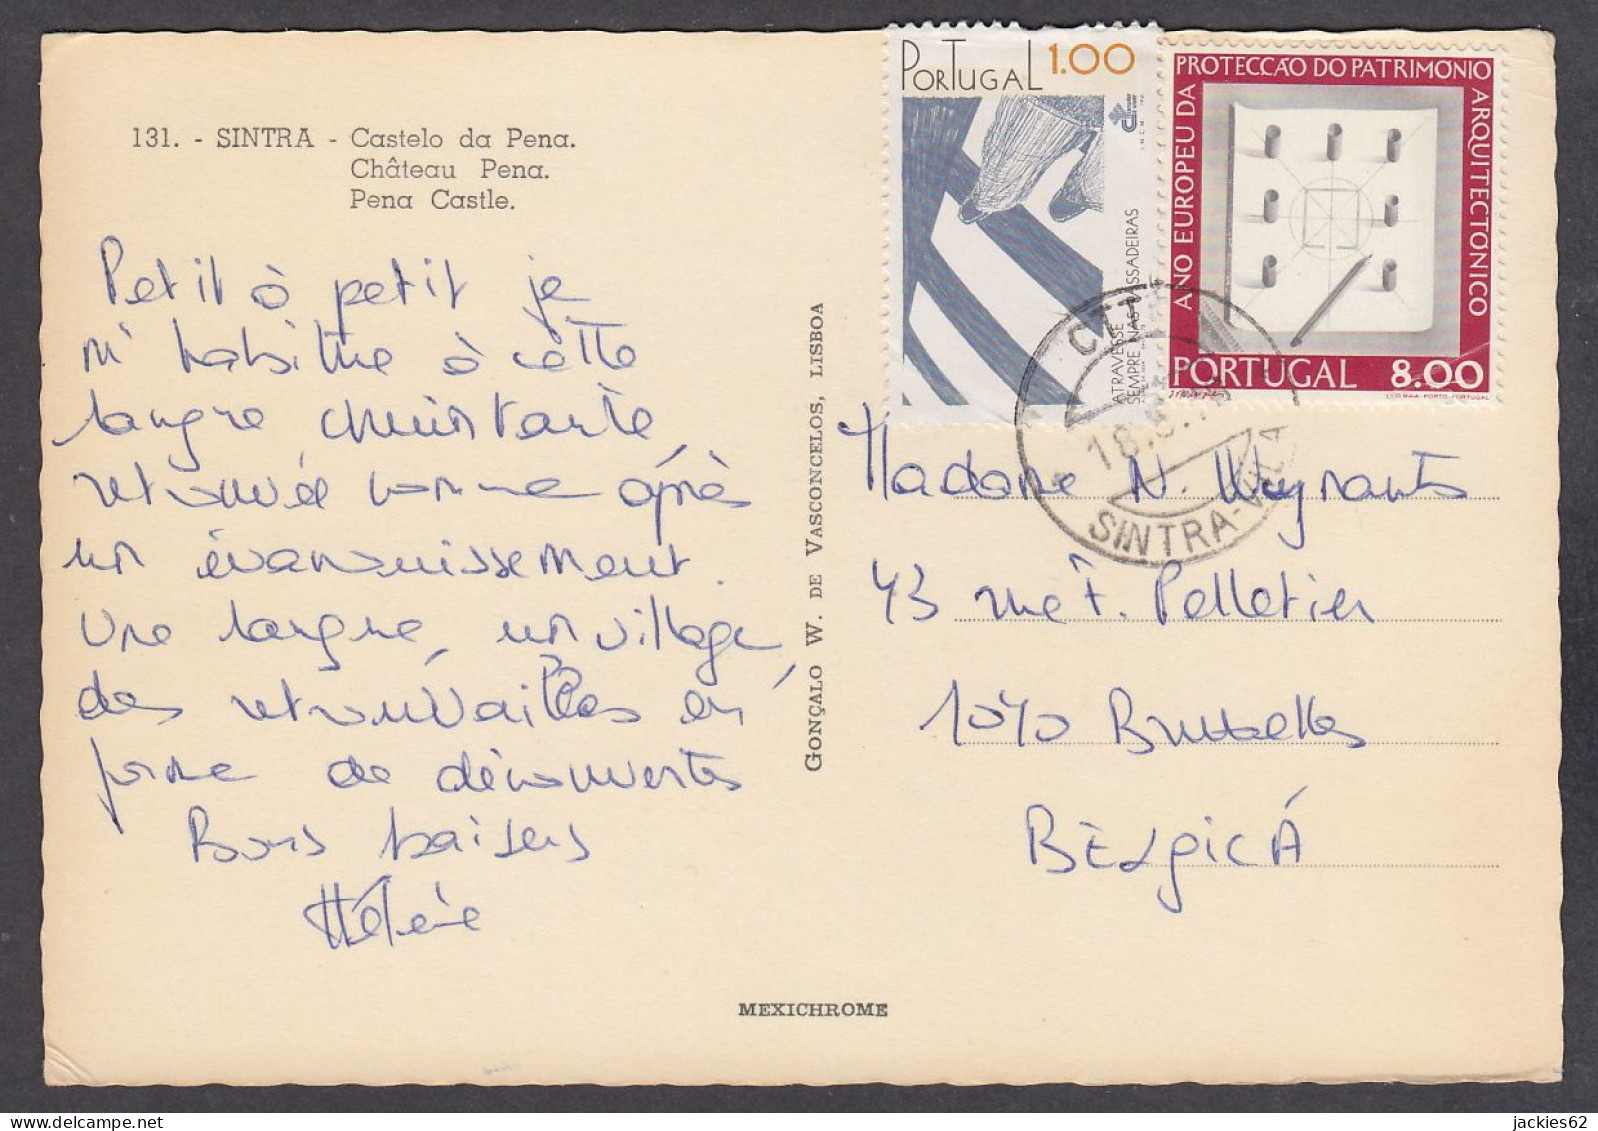 131. - SINTRA - Castelo da Pena.
Château Pena.
Pena Castle.
Petit à petit je
m'habitue à cette
langue chuintante,
retrouvée comme après
un évanouissement.
Une langue, un village,
des retrouvailles en
forme de découvertes
Bons baisers
Hélène
GONÇALO W. DE VASCONCELOS, LISBOA
MEXICHROME
PORTUGAL 1.00
ATRAVESSE
SEMPRE NAS PASSADEIRAS
ANO EUROPEU DA PROTECÇÃO DO PATRIMÓNIO ARQUITECTÓNICO
PORTUGAL 8.00
CTT
18.5.
SINTRA-VILA
Madame N. Wuynants
43 rue F. Pelletier
1040 Bruxelles
BELGICA
jackies62